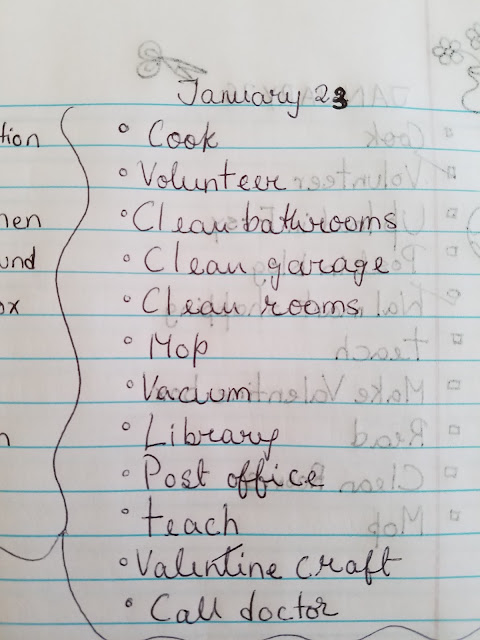 January 23
• Cook
• Volunteer
• Clean bathrooms
• Clean garage
• Clean rooms
• Mop
• Vacuum
• Library
• Post office
• teach
• Valentine craft
• Call doctor